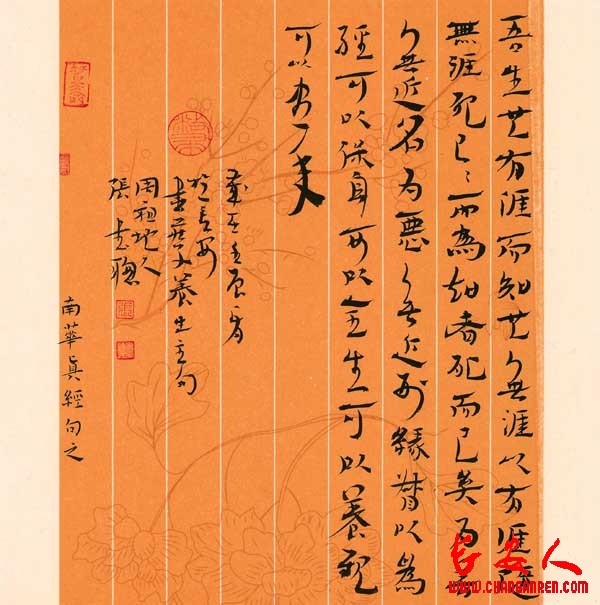 吾生也有涯而知也無涯以有涯隨
無涯殆已〻而為知者殆而已矣為善
無近名為惡無近刑緣督以為
經可以保身可以全生可以養親
可以盡年
於長安
書莊子養生主句
張
南華真經句之
长安人
WWW.CHANGANREN.COM